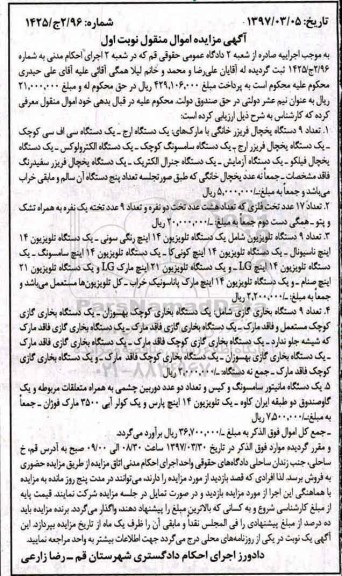 تاریخ: ۱۳۹۷/۰۳/۰۵ شماره: ۲/۹۶ج/۱۴۲۵
آگهی مزایده اموال منقول نوبت اول
به موجب اجراییه صادره از شعبه ۲ دادگاه عمومی حقوقی قم که در شعبه ۲ اجرای احکام مدنی به شماره
۲/۹۶ج/۱۴۲۵ ثبت گردیده له آقایان علی‌رضا و محمد و خانم لیلا همگی آقائی علیه آقای علی حیدری
محکوم علیه محکوم است به پرداخت مبلغ ۴۲۹,۱۰۶,۰۰۰ ریال در حق محکوم له و مبلغ ۲۱,۰۰۰,۰۰۰
ریال به عنوان نیم عشر دولتی در حق صندوق دولت. محکوم علیه در قبال بدهی خود اموال منقول معرفی
کرده که کارشناس به شرح ذیل ارزیابی کرده است:
۱. تعداد ۹ دستگاه یخچال فریزر خانگی با مارک‌های: یک دستگاه ارج ـ یک دستگاه سی اف سی کوچک
ـ یک دستگاه یخچال فریزر ارج ـ یک دستگاه سامسونگ کوچک ـ یک دستگاه الکترولوکس ـ یک دستگاه
یخچال فیلکو ـ یک دستگاه آزمایش ـ یک دستگاه جنرال الکتریک ـ یک دستگاه یخچال فریزر سفیدرنگ
فاقد مشخصات ـ جمعاً نه عدد یخچال خانگی که طبق صورتجلسه تعداد پنج دستگاه آن سالم و مابقی خراب
می‌باشد و جمعاً به مبلغ:ـ/۵,۰۰۰,۰۰۰ ریال
۲. تعداد ۱۷ عدد تخت فلزی که تعداد هشت عدد تخت دو نفره و تعداد ۹ عدد تخته یک نفره به همراه تشک
و پتو ـ همگی دست دوم جمعاً به مبلغ ـ/۲۰,۰۰۰,۰۰۰ ریال
۳. تعداد ۹ دستگاه تلویزیون شامل یک دستگاه تلویزیون ۱۴ اینچ رنگی سونی ـ یک دستگاه تلویزیون ۱۴
اینچ ناسیونال ـ یک دستگاه تلویزیون ۱۴ اینچ کونی‌کا ـ یک دستگاه تلویزیون ۱۴ اینچ سامسونگ ـ یک
دستگاه تلویزیون ۱۴ اینچ LG ـ و یک دستگاه تلویزیون ۲۱ اینچ مارک LG و یک دستگاه تلویزیون ۲۱
اینچ صنام ـ و یک دستگاه تلویزیون ۱۴ اینچ مارک پاناسونیک خراب ـ کل تلویزیون‌ها مستعمل می‌باشد و
جمعاً به مبلغ:ـ/۲,۲۰۰,۰۰۰ ریال
۴. تعداد ۹ دستگاه بخاری گازی شامل: یک دستگاه بخاری کوچک بهسوزان ـ یک دستگاه بخاری گازی
کوچک مستعمل و فاقد مارک ـ یک دستگاه بخاری گازی فاقد مارک ـ یک دستگاه بخاری گازی فاقد مارک
که شیشه جلو ندارد ـ یک دستگاه گازی کوچک فاقد مارک ـ یک دستگاه بخاری گازی فاقد مارک کوچک
ـ یک دستگاه بخاری گازی بهسوزان ـ یک دستگاه بخاری کوچک فاقد مارک ـ و یک دستگاه بخاری گازی
کوچک فاقد مارک ـ جمع نه دستگاه ـ/۲,۰۰۰,۰۰۰ ریال
۵. یک دستگاه مانیتور سامسونگ و کیس و تعداد دو عدد دوربین چشمی به همراه متعلقات مربوطه و یک
گاوصندوق دو طبقه ایران کاوه ـ یک تلویزیون ۱۴ اینچ پارس و یک کولر آبی ۳۵۰۰ مارک فوژان ـ جمعاً
به مبلغ:ـ/۷,۵۰۰,۰۰۰ ریال
ـ جمع کل اموال فوق الذکر به مبلغ ـ/۳۶,۷۰۰,۰۰۰ ریال برآورد می‌گردد.
و مقرر گردیده موارد فوق الذکر در تاریخ ۱۳۹۷/۰۳/۳۰ ساعت ۰۸/۳۰ الی ۰۹/۰۰ صبح به آدرس قم، خ
ساحلی، جنب زندان ساحلی دادگاه‌های حقوقی واحد اجرای احکام مدنی اتاق مزایده از طریق مزایده حضوری
به فروش برسد. لذا افرادی که قصد بازدید از مورد مزایده را دارند، می‌توانند در مدت پنج روز مانده به مزایده
با هماهنگی این اجرا از مورد مزایده بازدید و در صورت تمایل در جلسه مزایده شرکت نمایند. قیمت پایه
از مبلغ کارشناسی شروع و به کسانی که بالاترین مبلغ را پیشنهاد دهند، واگذار می‌گردد. برنده مزایده باید
ده درصد از مبلغ پیشنهادی را فی المجلس نقداً و مابقی آن را ظرف یک ماه از تاریخ مزایده بپردازد. این
آگهی یک نوبت در یکی از روزنامه‌های محلی درج می‌گردد جهت اطلاعات بیشتر به واحد مراجعه نمایید.
دادورز اجرای احکام دادگستری شهرستان قم ـ رضا زارعی